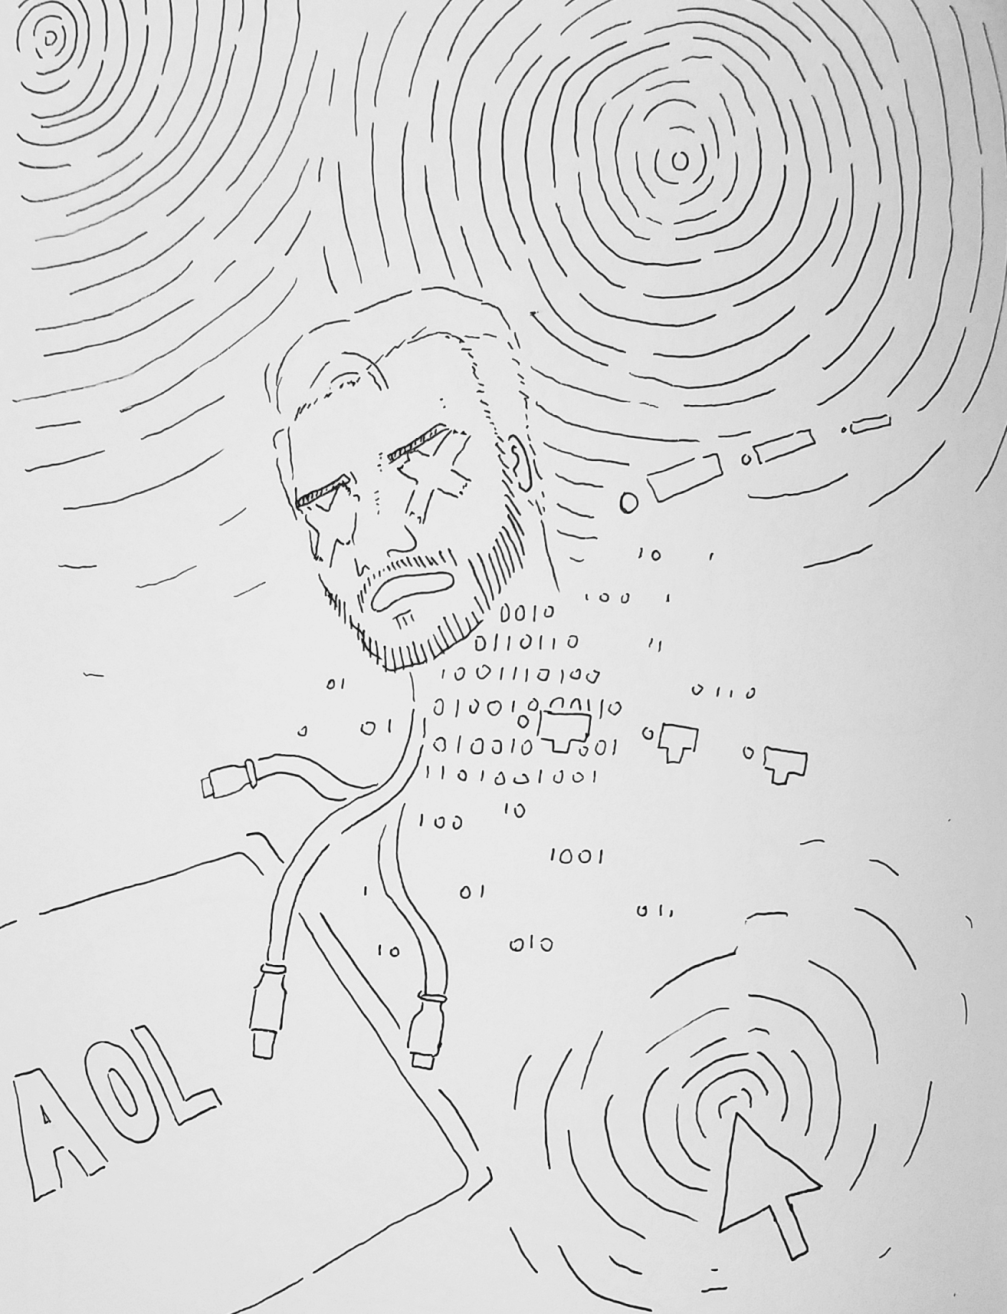 10 1
100 1
0010
0110110
11
1001110100
01
0110
01001000110
0 01
010010 001
1101001001
10
100
1001
1
01
011
10
010
AOL